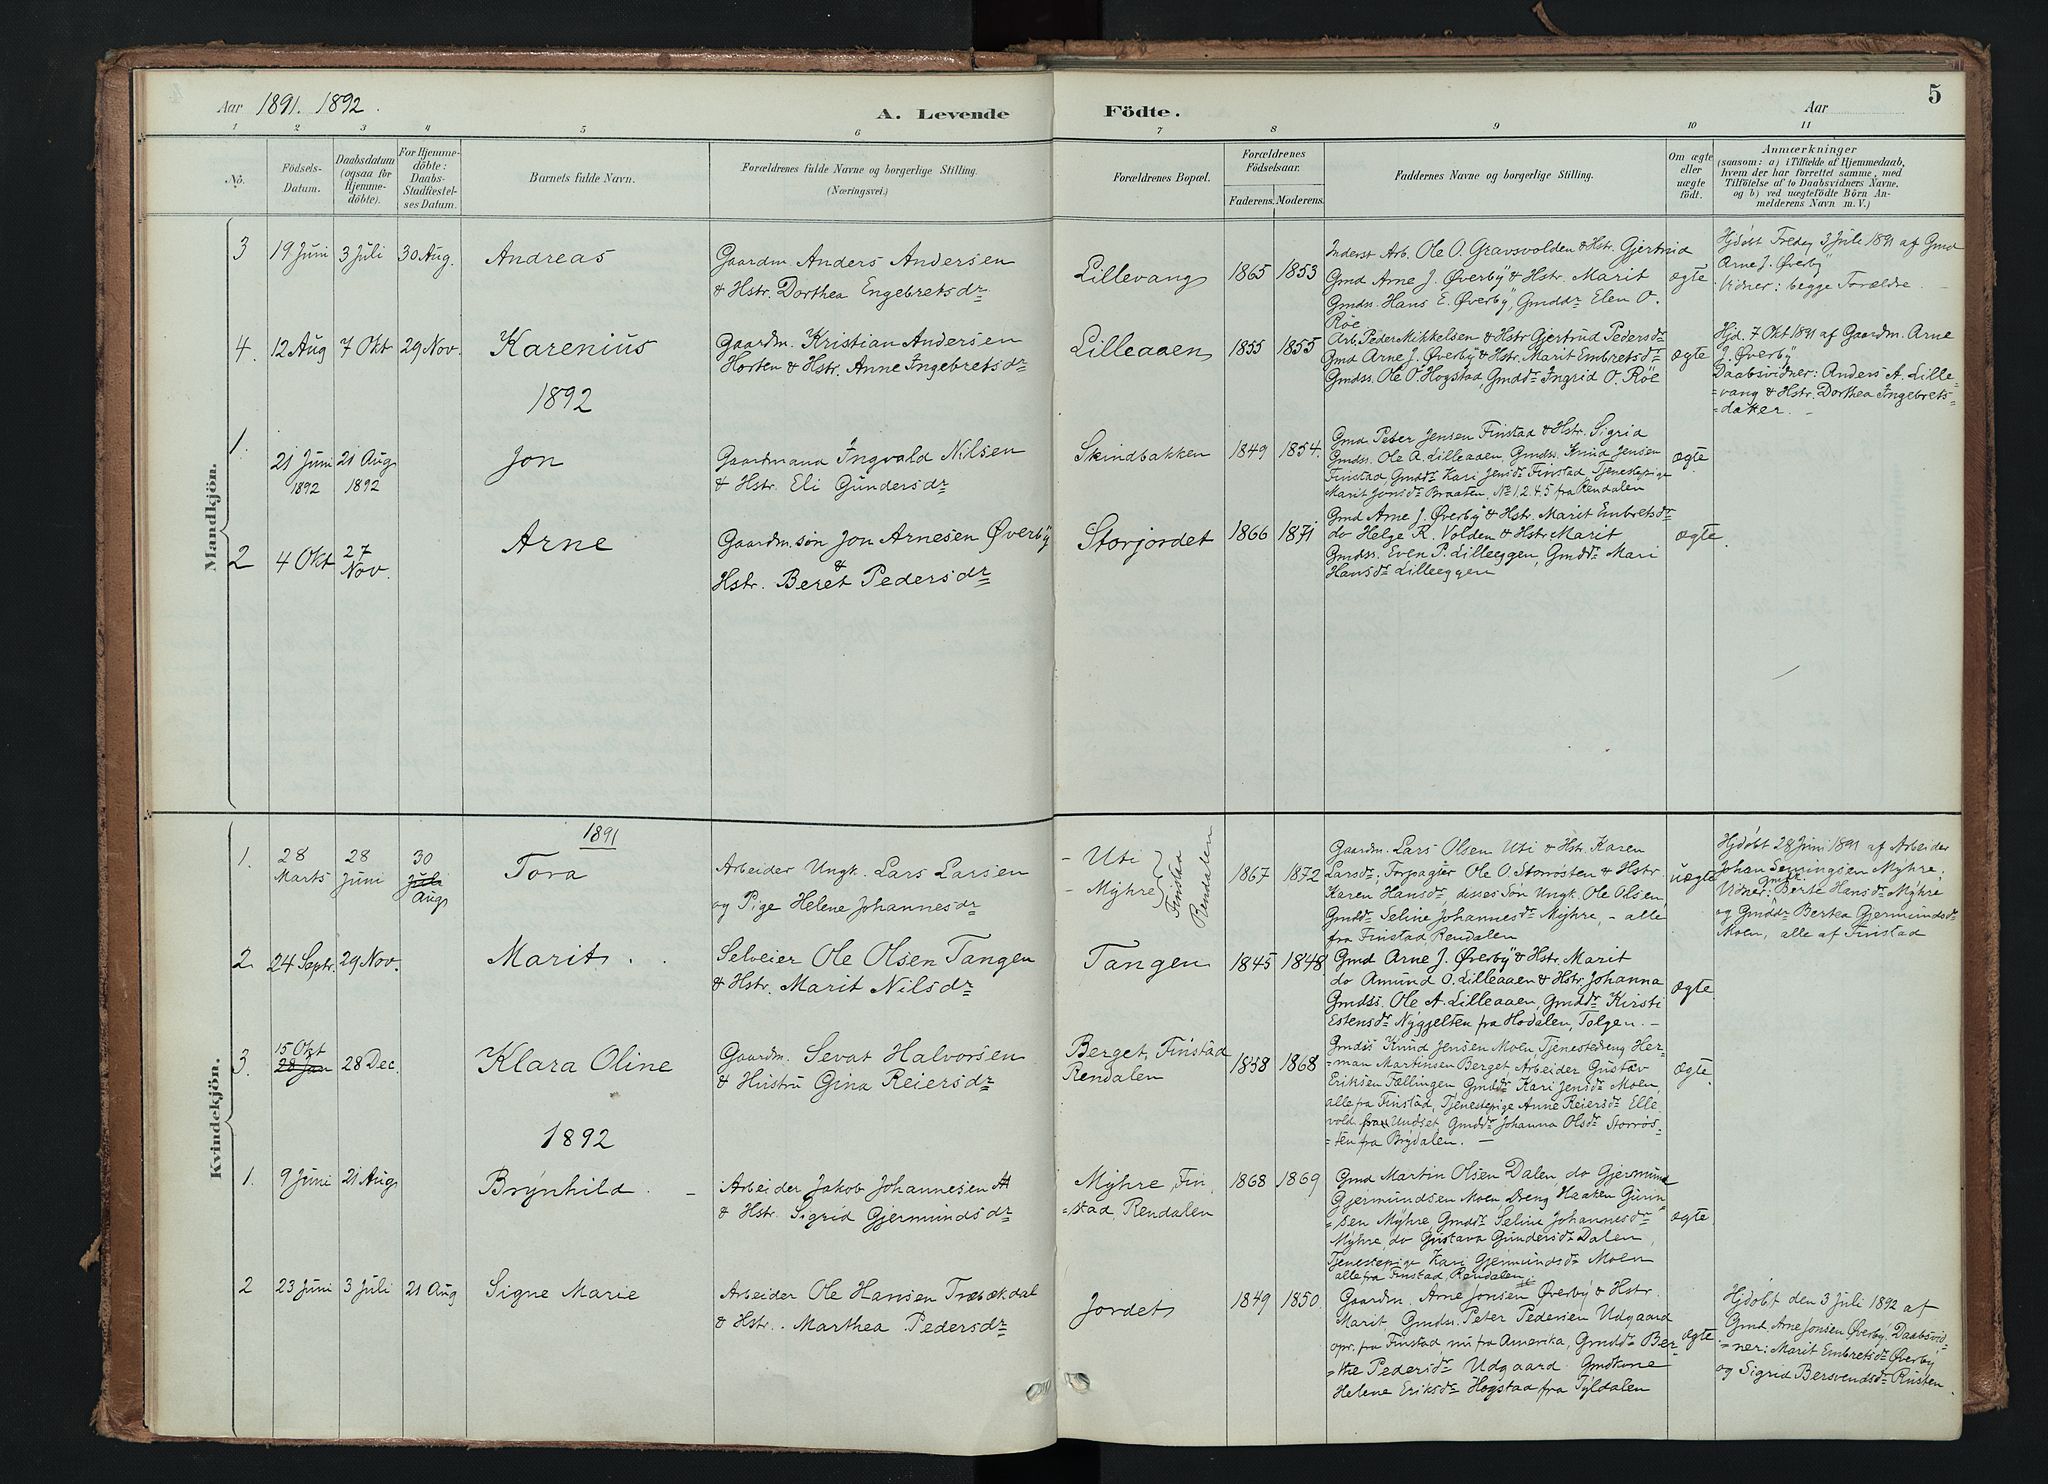 Aar 1891. 1892.
A. Levende Födte.
Aar
5
1 2 3 4 5 6 7 8 9 10 11
No.
Födsels-Datum.
Daabsdatum (ogsaa for Hjemmedöbte).
For Hjemmedöbte: Daabs-Stadfæstelses Datum.
Barnets fulde Navn.
Forældrenes fulde Navne og borgerlige Stilling.
(Næringsvei.)
Forældrenes Bopæl.
Forældrenes Födselsaar.
Faderens. Moderens.
Faddernes Navne og borgerlige Stilling.
Om ægte eller uægte født.
Anmærkninger
(saasom: a) i Tilfælde af Hjemmedaab,
hvem der har forrettet samme, med
Tilföielse af to Daabsvidners Navne.
og b) ved uægtefödte Börn An-
melderens Navn m. V.)
Mandkjön.
3 19 Juni 3 Juli 30 Aug. Andreas
Gaardm. Anders Andersen
& Hstr. Dorthea Engebretsdr
Lillevang 1865 1853
Inderst Arb. Ole O. Gravsvolden & Hstr. Gjertrud
Gmd Arne J. Øverby & Hstr. Marit
Gmdss. Hans E. Øverby, Gmddr Elen O.
Røe
ægte
Hjdøbt Fredag 3 Juli 1891 af Gmd
Arne J. Øverby
Vidner: begge Forældre.
4. 12 Aug 7 Okt 29 Nov. Karenius
Gaardm. Kristian Andersen
Horten & Hstr. Anne Ingebretsdr
Lilleaaen 1855 1855
Arb. Peder Mikkelsen & Hstr Gjertrud Pedersdr
Gmd Arne J. Øverby & Hstr. Marit Embretsdr
Gmdss. Ole O. Hogstad, Gmddr Ingrid O. Røe
ægte
Hjd. 7 Okt 1891 af Gaardm. Arne
J. Øverby
Daabsvidner: Anders A. Lille-
=vang & Hstr. Dorthea Ingebrets=
=datter. -
1892
1. 21 Juni 1892 21 Aug 1892 Jon
Gaardmand Ingvald Nilsen
& Hstr. Eli Gundersdr
Skindbakken 1849 1854.
Gmd Peter Jensen Finstad & Hstr. Sigrid
Gmdss. Ole A. Lilleaaen, Gmdss. Knud Jensen
Finstad, Gmddr Kari Jensdr Finstad, Tjenestepige
Marit Jonsdr Braaten, No 1.2.4.5 fra Rendalen
ægte
2 4 Okt 27 Nov. Arne
Gaardm.søn Jon Arnesen Øverby
&
Hstr. Beret Pedersdr
Storjordet 1866 1871
Gmd Arne J. Øverby & Hstr. Marit Embretsdr
do Helge R. Volden & Hstr Marit
Gmdss. Even P. Lilleeggen, Gmddr Mari
Hansdr Lilleeggen
ægte.
Kvindekjön.
1891
1. 28 Marts 28 Juni 30 Juli Aug Tora
Arbeider Ungk. Lars Larsen
og Pige Helene Johannesdr
- Uti
- Myhre
Finstad
Rendalen
1867 1872
Gaardm. Lars Olsen Uti & Hstr. Karen
Larsdr; Forpagter Ole O. Storrøsten & Hstr.
Karen Hansdr, disses Søn Ungk. Ole Olsen,
Gmddr Seline Johannesdr Myhre, - alle
fra Finstad Rendalen
uægte
Hjdøbt 28 Juni 1891 af Arbeider
Johan Myhre;
Vidner: Berte Hansdr Myhre
og Gmddr Bertea Gjermundsdr
Moen, alle af Finstad
2. 24 Septr. 29 Nov. Marit.
Selveier Ole Olsen Tangen
& Hstr. Marit Nilsdr
Tangen 1845 1848
Gmd Arne J. Øverby & Hstr. Marit
do Amund O. Lilleaaen & Hstr. Johanna
Gmdss. Ole A. Lilleaaen, Gmddr Kirsti
Estensdr Nygjelten fra Hodalen, Tolgen. -
ægte.
3. 15 Okt 28 Jan 28 Dec. Klara Oline
Gaardm. Sevat Halvorsen
& Hustru Gina Reiersdr
Berget, Finstad
Rendalen
1858 1868
Gmdss Knud Jensen Moen, Tjenestedreng Her-
=man Martinsen Berget, Arbeider Gustav
Eriksen Fællingen Gmddr Kari Jensdr Moen,
alle fra Finstad, Tjenestepige Anne Reiersdr Elle-
vold fra Undset Gmddr Johanna Olsdr Storrøs-
=ten fra Brydalen. -
ægte.
1892
1. 9 Juni 21 Aug Brynhild. -
Arbeider Jakob Johannesen
& Hstr. Sigrid Gjermundsdr
Myhre, Fin
=stad, Rendalen
1868 1869
Gmd Martin Olsen Dalen do Gjermund
Gjermundsen Moen Dreng Haaken
=sen Myhre, Gmddr Seline Johannesdr
Myhre, do Gustava Gundersdr Dalen,
Tjenestepige Kari Gjermundsdr Moen
alle fra Finstad, Rendalen
ægte.
2 23 Juni 3 Juli 21 Aug Signe Marie
Arbeider Ole Hansen Træbækdal
& Hstr. Marthea Pedersdr
Jordet 1849 1850.
Gaardm. Arne Jonsen Øverby & Hstr.
Marit, Gmdss. Peter Pedersen Udgaard
opr. fra Finstad, nu fra Amerika, Gmddr Ber-
=the Pedersdr Udgaard. Gmdkone
Helene Eriksdr Hogstad fra Tyldalen
ægte
Hjdøbt den 3 Juli 1892 af
Gmd. Arne Jonsen Øverby. Daabsvid-
=ner: Marit Embretsdr Øverby
og Sigrid Bersvendsdr Rusten.